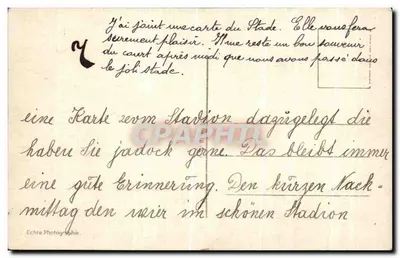 J'ai joint une carte du Stade. Elle vous fera
surement plaisir. Il me reste un bon souvenir
du court après midi que nous avons passé dans
le joli stade.
eine Karte vom Stadion dazügelegt die
haben Sie jadoch gerne. Das bleibt immer
eine güte Erinnerüng. Den kürzen Nach-
mittag den wier im schönen Stadion
Echte Photographie